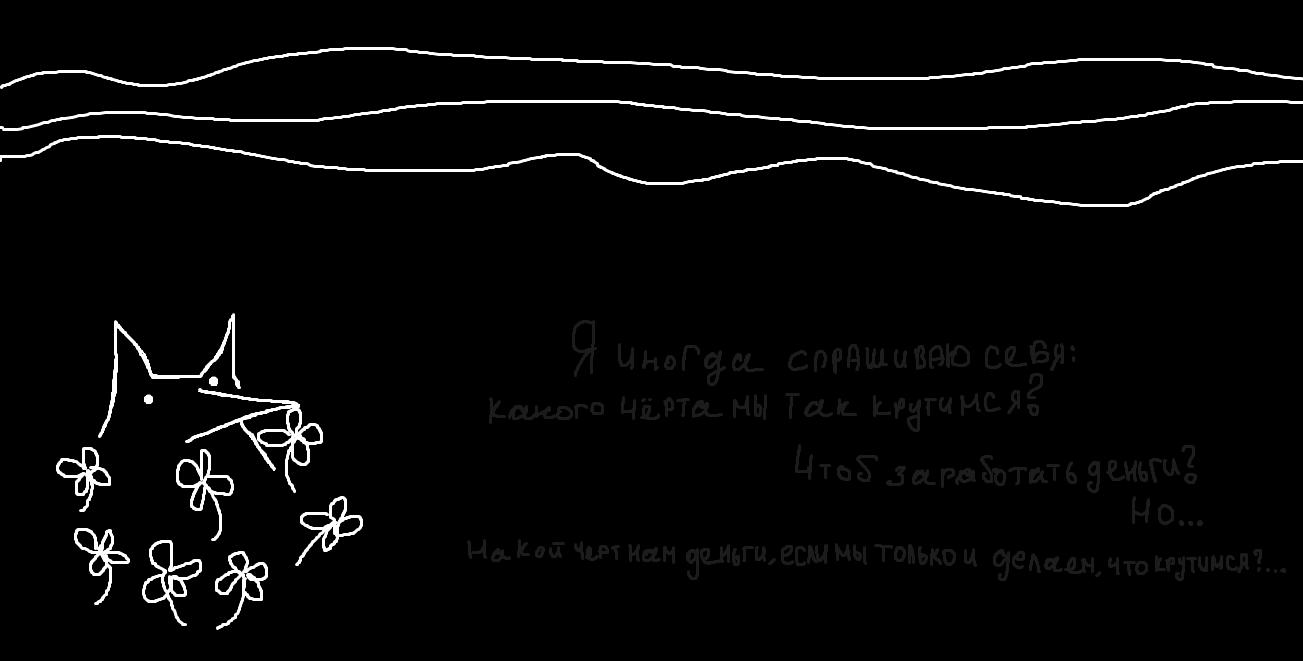 Я иногда спрашиваю себя:
какого чёрта мы так крутимся?
Чтоб заработать деньги?
Но...
На кой черт нам деньги, если мы только и делаем, что крутимся?...